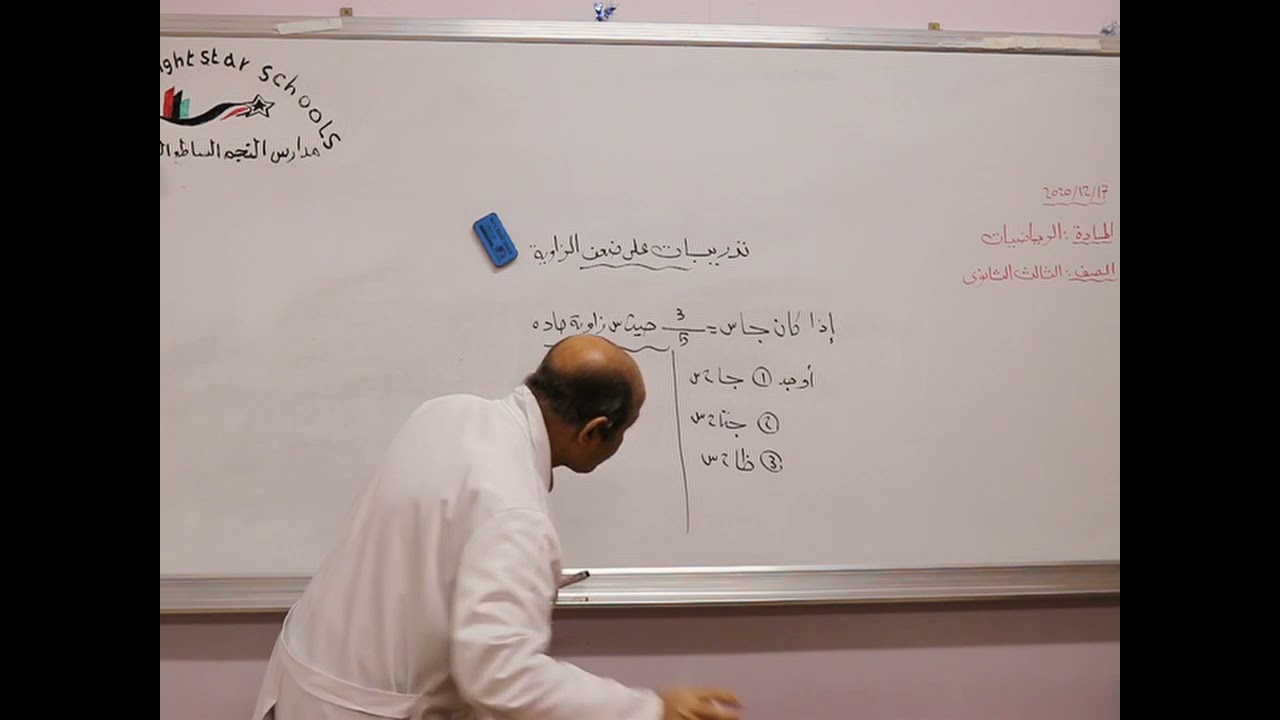 ghtstar Schools
مدارس النجم الساطع
2020/12/17
المادة : الرياضيات
الصف : الثالث الثانوي
تدريبات على ضعف الزاوية
إذا كان جا س = 3/5 حيث س زاوية حاده
أوجد ① جا ٢ س
② جتا ٢ س
③ ظا ٢ س